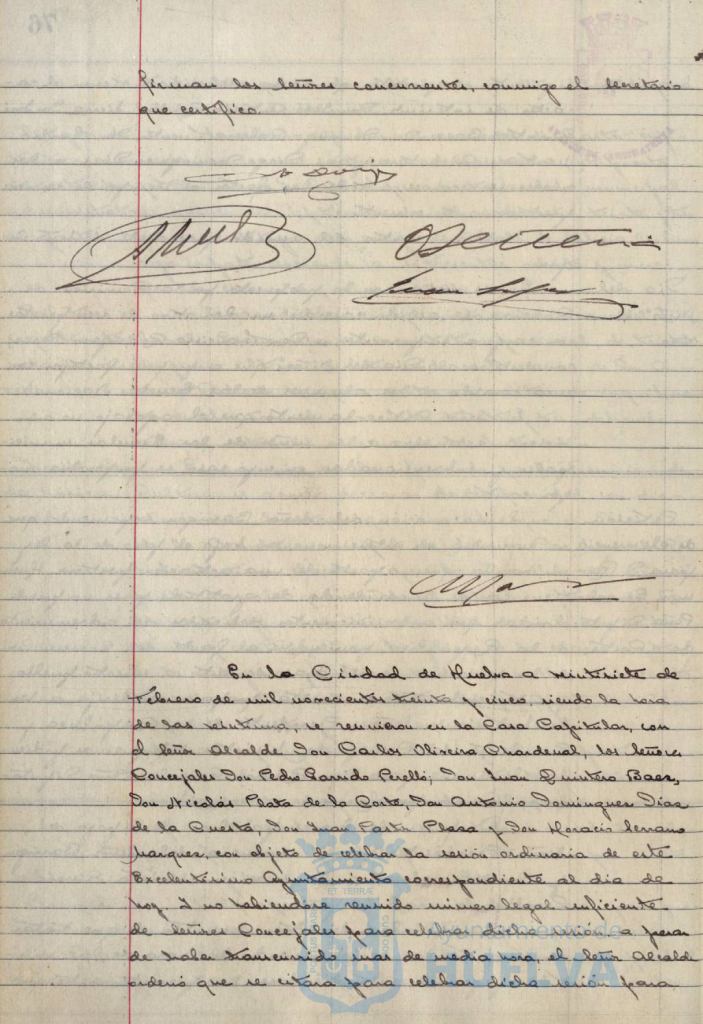 firman los señores concurrentes, conmigo el secretario
que certifico.
En la Ciudad de Huelva a veintisiete de
Febrero de mil novecientos treinta y cinco, siendo la hora
de las veintiuna, se reunieron en la Casa Capitular, con
el Señor Alcalde Don Carlos Oliveira Chardenal, los Señores
Concejales Don Pedro Garrido Perelló; Don Juan Quintero Baez,
Don Nicolás Plata de la Corte, Don Antonio Dominguez Diaz
de la Cuesta, Don Juan Plaza y Don Horacio Serrano
Marquez, con objeto de celebrar la sesión ordinaria de este
Excelentísimo Ayuntamiento correspondiente al dia de
hoy. Y no habiendose reunido número legal suficiente
de señores Concejales para celebrar dicha sesión a pesar
de haber transcurrido mas de media hora, el Señor Alcalde
ordenó que se citára para celebrar dicha sesión para
HUELVA